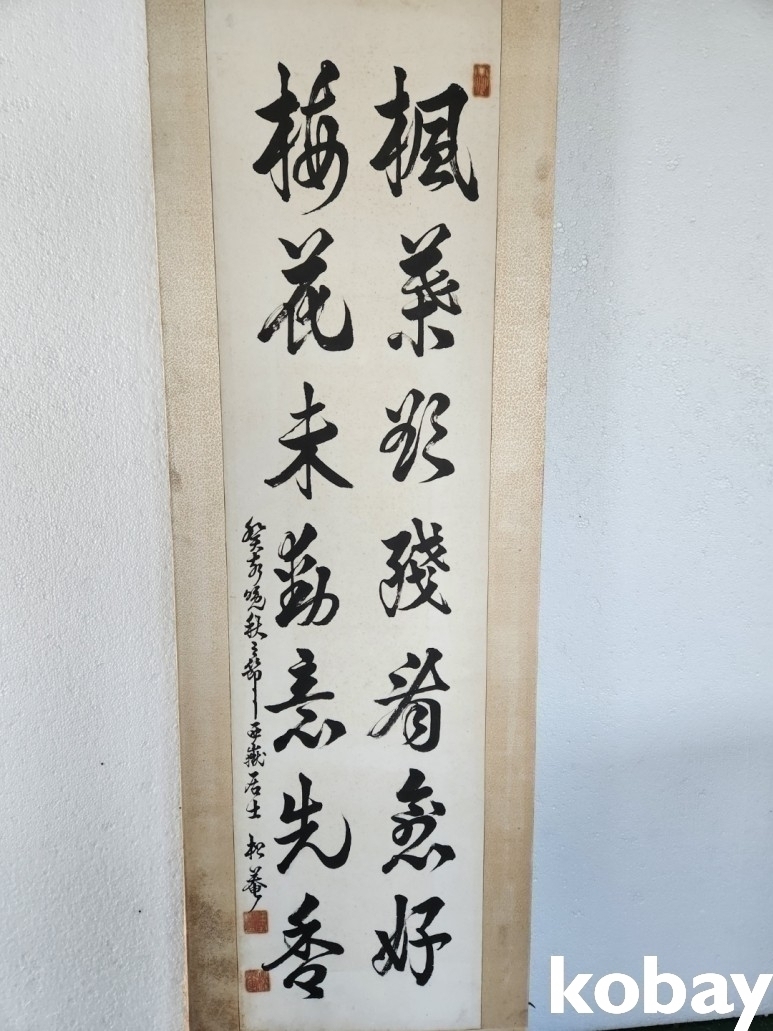 楓葉欲殘看愈好
梅花未動意先香
癸亥晚秋之節 西巖居士 松菴
kobay